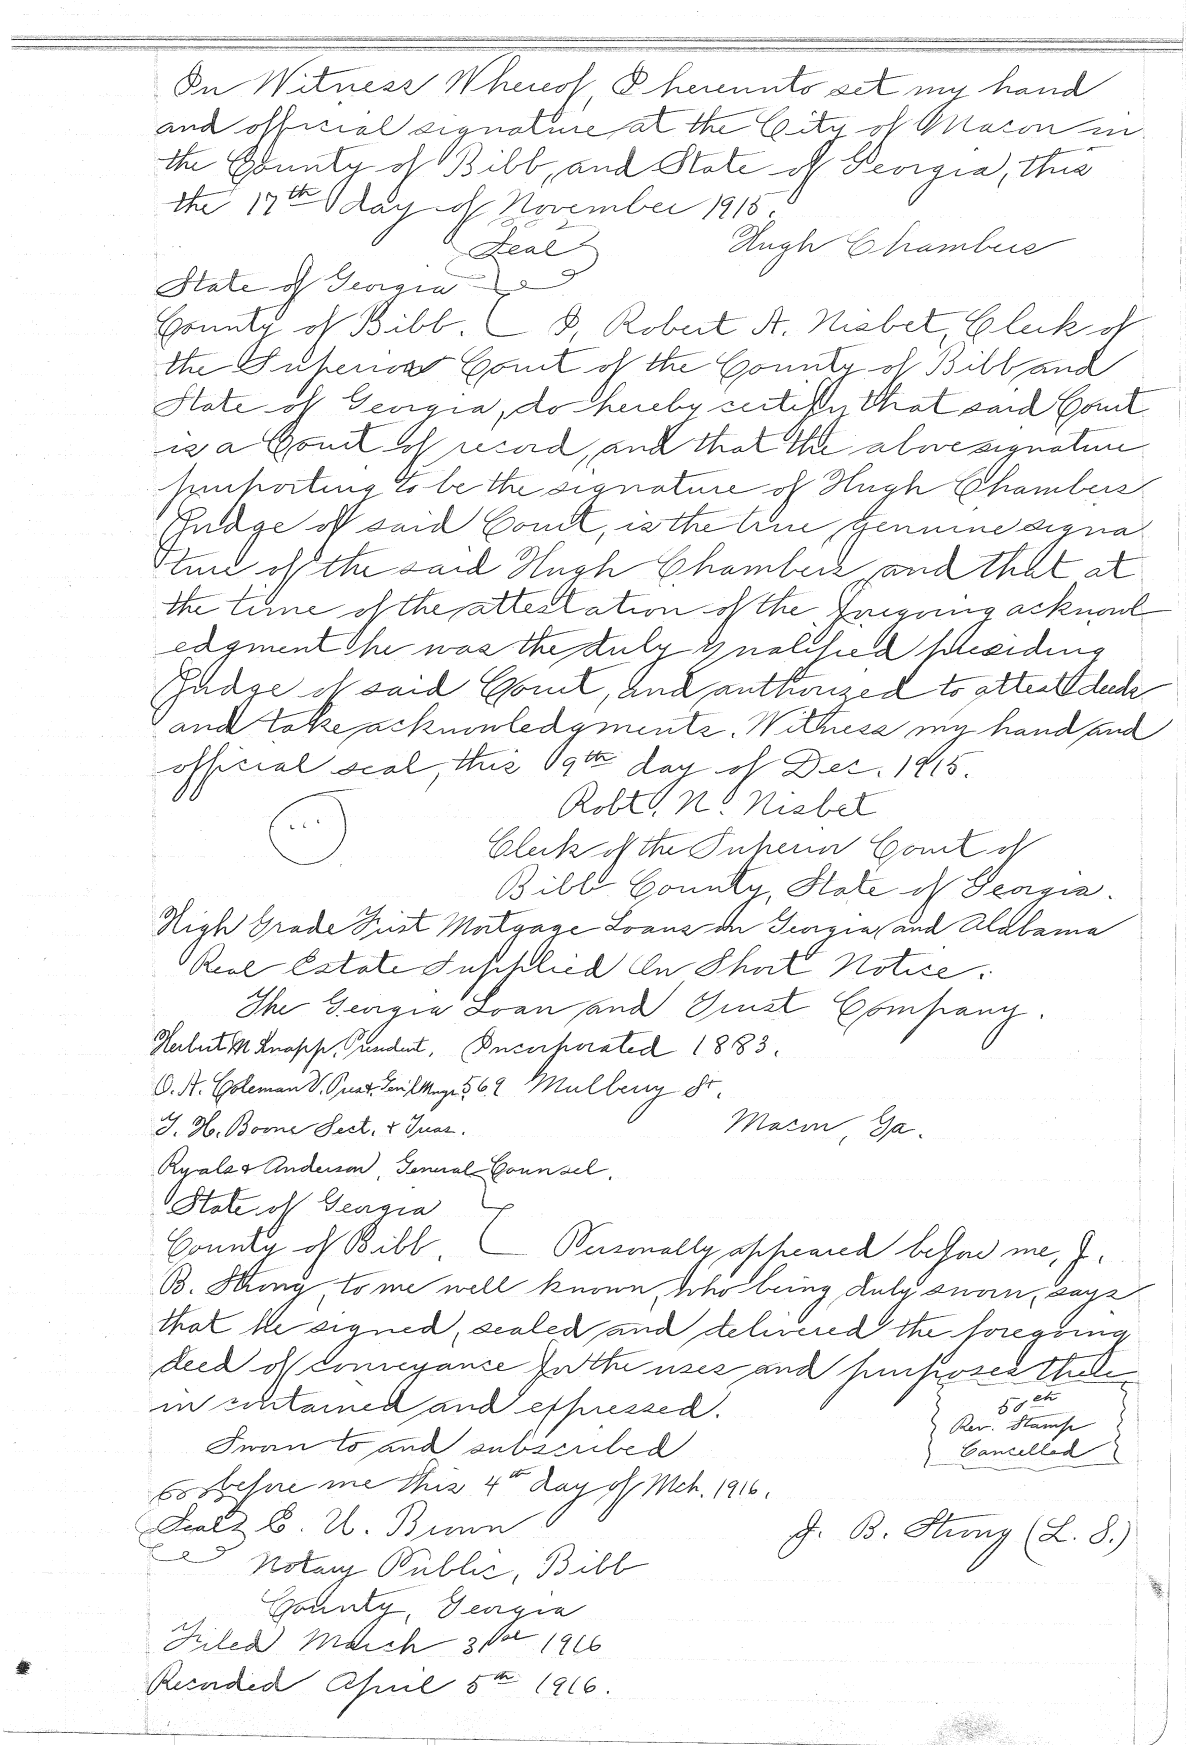 In Witness Whereof, I hereunto set my hand
and official signature at the City of Macon in
the County of Bibb, and State of Georgia, this
the 17th day of November 1915.
Seal Hugh Chambers
State of Georgia
County of Bibb. I, Robert A. Nisbet, Clerk of
the Superior Court of the County of Bibb and
State of Georgia, do hereby certify that said Court
is a Court of record, and that the above signature
purporting to be the signature of Hugh Chambers
Judge of said Court, is the true genuine signa
ture of the said Hugh Chambers and that at
the time of the attestation of the foregoing acknowl
edgment he was the duly qualified presiding
Judge of said Court, and authorized to attest deeds
and take acknowledgments. Witness my hand and
official seal, this 9th day of Dec. 1915.
Robt. N. Nisbet
Clerk of the Superior Court of
Bibb County, State of Georgia.
High Grade First Mortgage Loans on Georgia and Alabama
Real Estate Supplied On Short Notice.
The Georgia Loan and Trust Company.
Herbert M Knapp, President, Incorporated 1883.
O. A. Coleman V. Prest. Gen'l Mngr. 569 Mulberry St.
J. H. Boone Sect. & Treas. Macon, Ga.
Ryals & Anderson, General Counsel.
State of Georgia
County of Bibb. Personally appeared before me, J.
B. Strong, to me well known, who being duly sworn, says
that he signed, sealed and delivered the foregoing
deed of conveyance for the uses and purposes there
in contained and expressed.
50 cts
Rev. Stamp
Cancelled
Sworn to and subscribed
before me this 4th day of Mch. 1916.
Seal C. U. Brown J. B. Strong (L. S.)
Notary Public, Bibb
County, Georgia
Filed March 31st 1916
Recorded April 5th 1916.